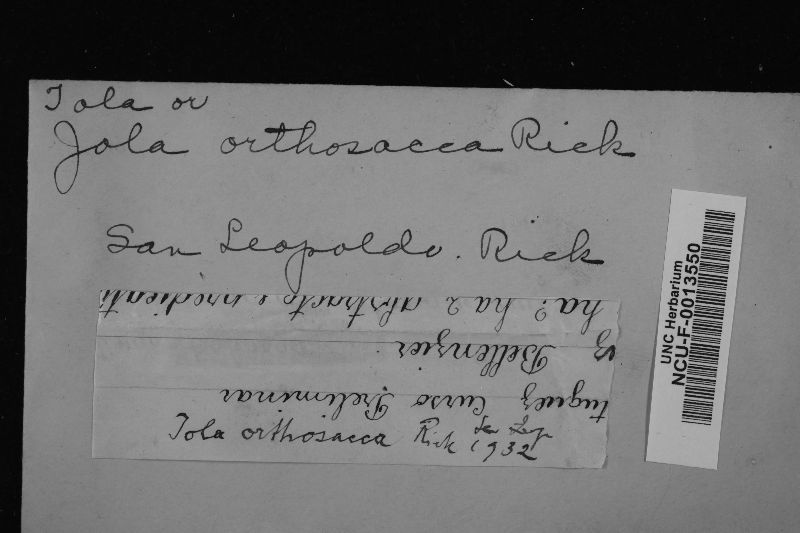 Iola or
Jola orthosacca Rick
San Leopoldo. Rick
ha? ha 2 abstracto e predicati
Bellenzier
tuguez Curso Preliminar
Iola orthosacca Rick San Leop
1932
UNC Herbarium
NCU-F-0013550